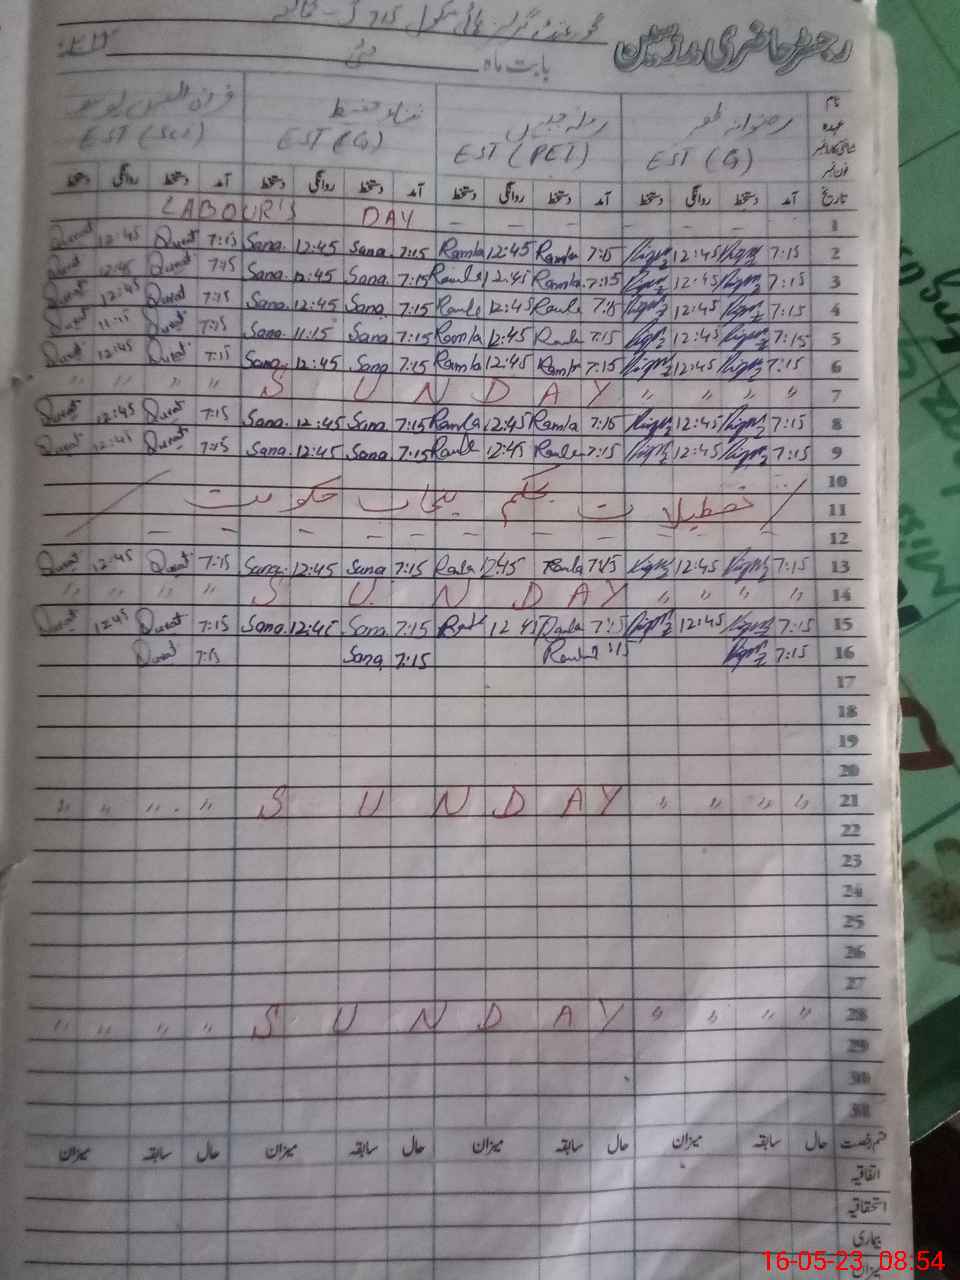 رجسٹر حاضری مدرسین
گورنمنٹ گرلز ہائی سکول 715 گ۔ب
بابت ماہ مئی
نام رضوانہ ظفر
عہدہ EST (G) EST (PET) EST (G) EST (Sci)
فون نمبر
تاریخ آمد دستخط روانگی دستخط آمد دستخط روانگی دستخط آمد دستخط روانگی دستخط آمد دستخط روانگی دستخط
LABOUR'S DAY – – – – – 1
Qurat 12:45 Qurat 7:15 Sana. 12:45 Sana. 7:15 Ramla 12:45 Ramla 7:15 12:45 7:15 2
Qurat 12:45 Qurat 7:15 Sana. 12:45 Sana. 7:15 Ramla 12:45 Ramla 7:15 12:45 7:15 3
Qurat 12:45 Qurat 7:15 Sana. 12:45 Sana. 7:15 Ramla 12:45 Ramla 7:15 12:45 7:15 4
Qurat 11:15 Qurat 7:15 Sana. 11:15 Sana. 7:15 Ramla 12:45 Ramla 7:15 12:45 7:15 5
Qurat 12:45 Qurat 7:15 Sana. 12:45 Sana 7:15 Ramla 12:45 Ramla 7:15 12:45 7:15 6
" " " " SUNDAY " " " " 7
Qurat 12:45 Qurat 7:15 Sana. 12:45 Sana. 7:15 Ramla 12:45 Ramla 7:15 12:45 7:15 8
Qurat 12:45 Qurat 7:15 Sana. 12:45 Sana. 7:15 Ramla 12:45 Ramla 7:15 12:45 7:15 9
10
تعطیلات بحکم پنجاب حکومت 11
– – – – – – – – – – 12
Qurat 12:45 Qurat 7:15 Sana. 12:45 Sana 7:15 Ramla 12:45 Ramla 7:15 12:45 7:15 13
" " " " SUNDAY " " " " 14
Qurat 12:45 Qurat 7:15 Sana. 12:45 Sana. 7:15 Ramla 12:45 Ramla 7:15 12:45 7:15 15
Qurat 7:15 Sana 7:15 Ramla 7:15 7:15 16
17
18
19
20
" " " " SUNDAY " " " " 21
22
23
24
25
26
27
" " " " SUNDAY " " " " 28
29
30
31
قسم رخصت حال سابقہ میزان حال سابقہ میزان حال سابقہ میزان حال سابقہ میزان
اتفاقیہ
استحقاقیہ
بیماری
میزان
16-05-23 08:54